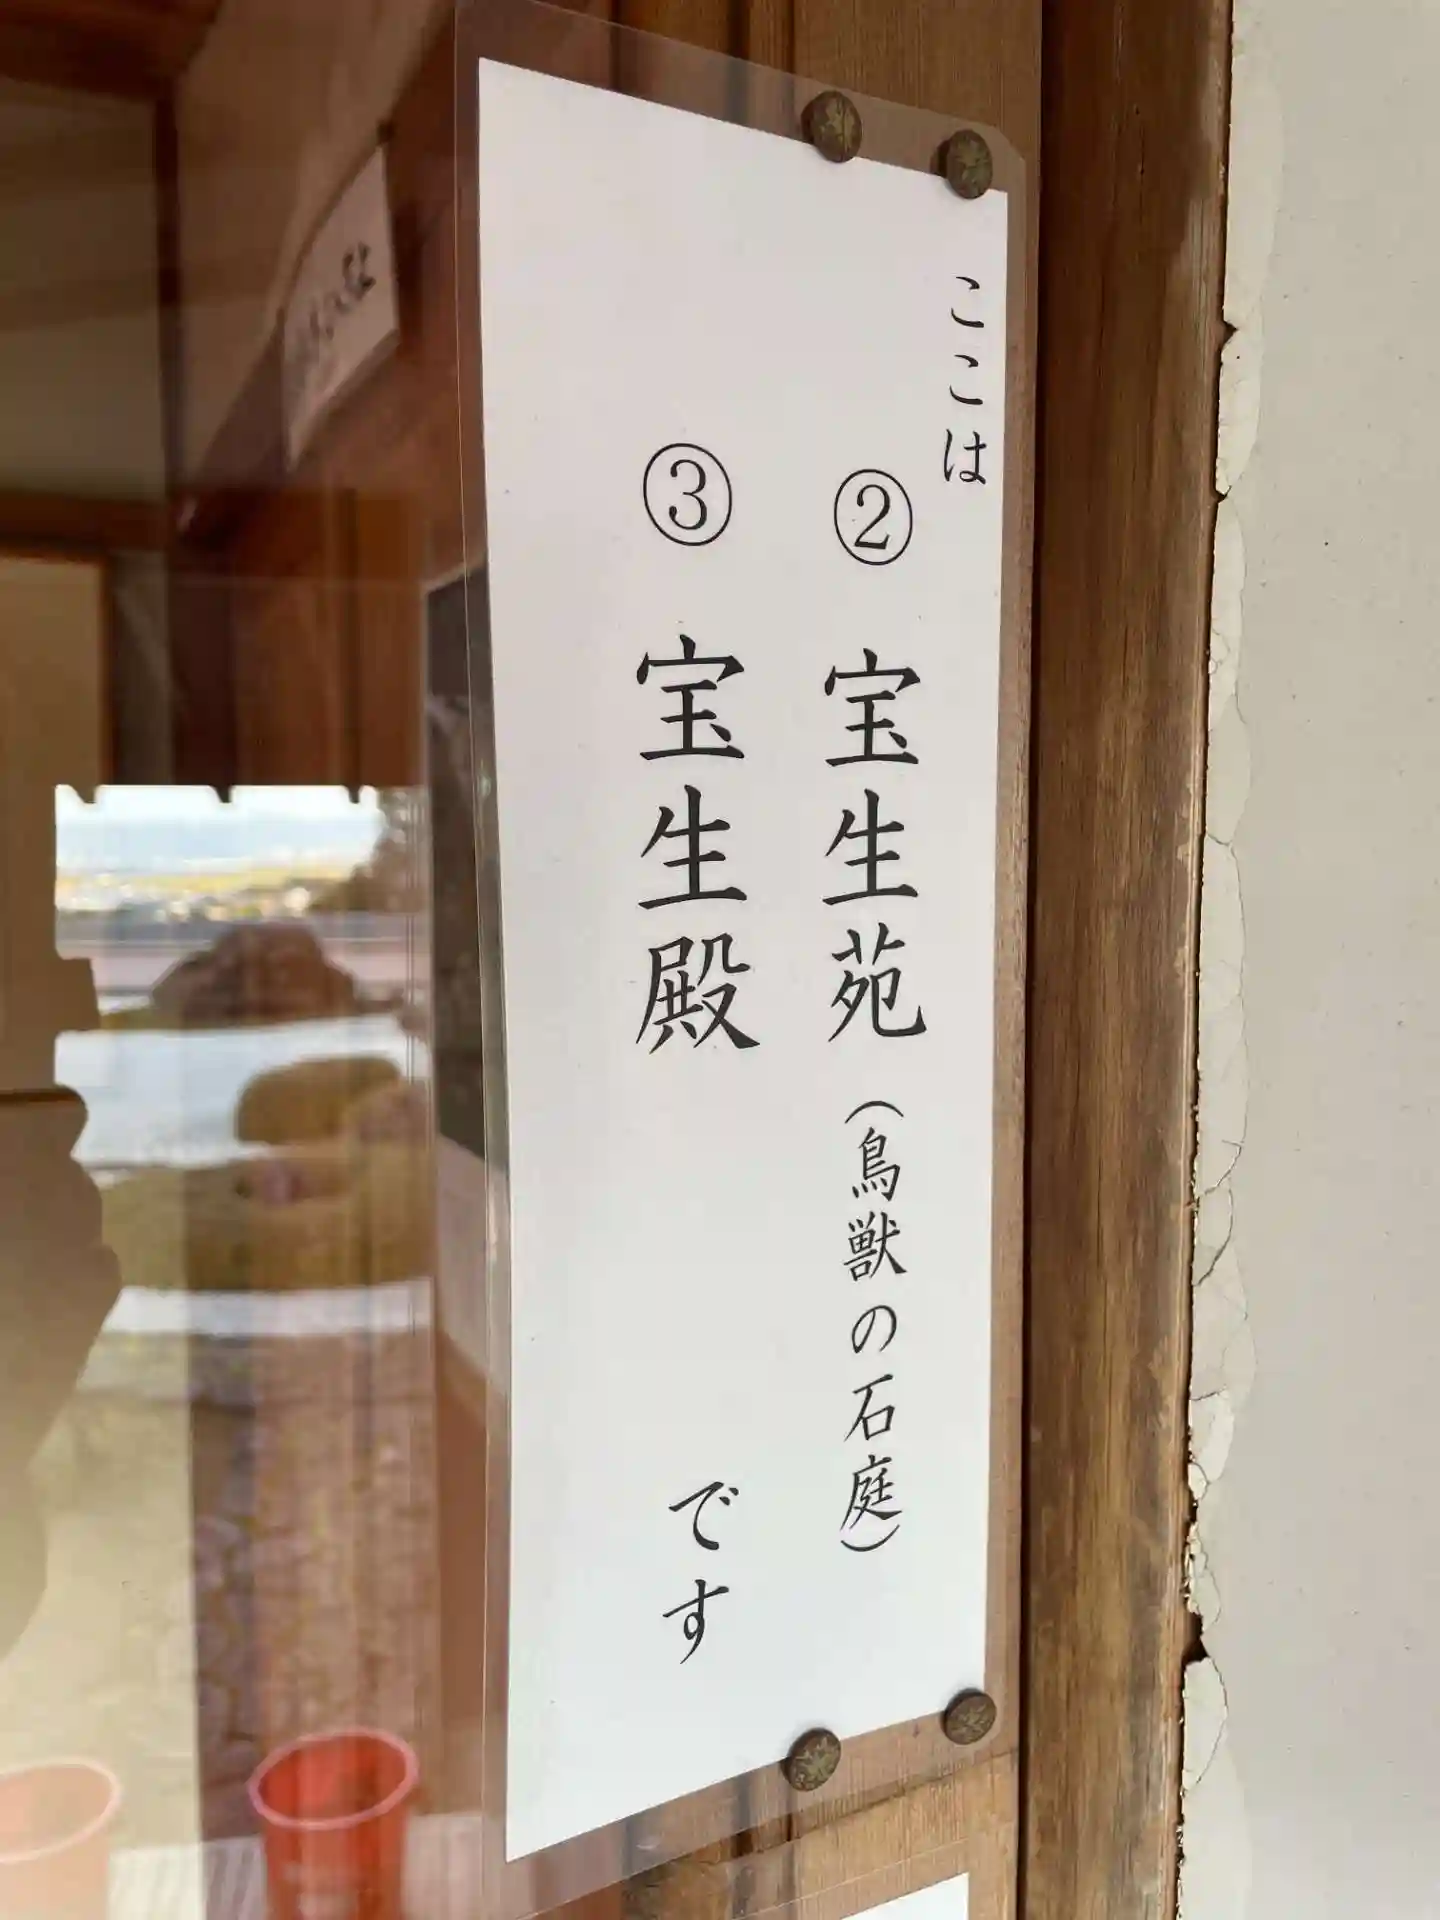 ここは
② 宝生苑(鳥獣の石庭)
③ 宝生殿 です